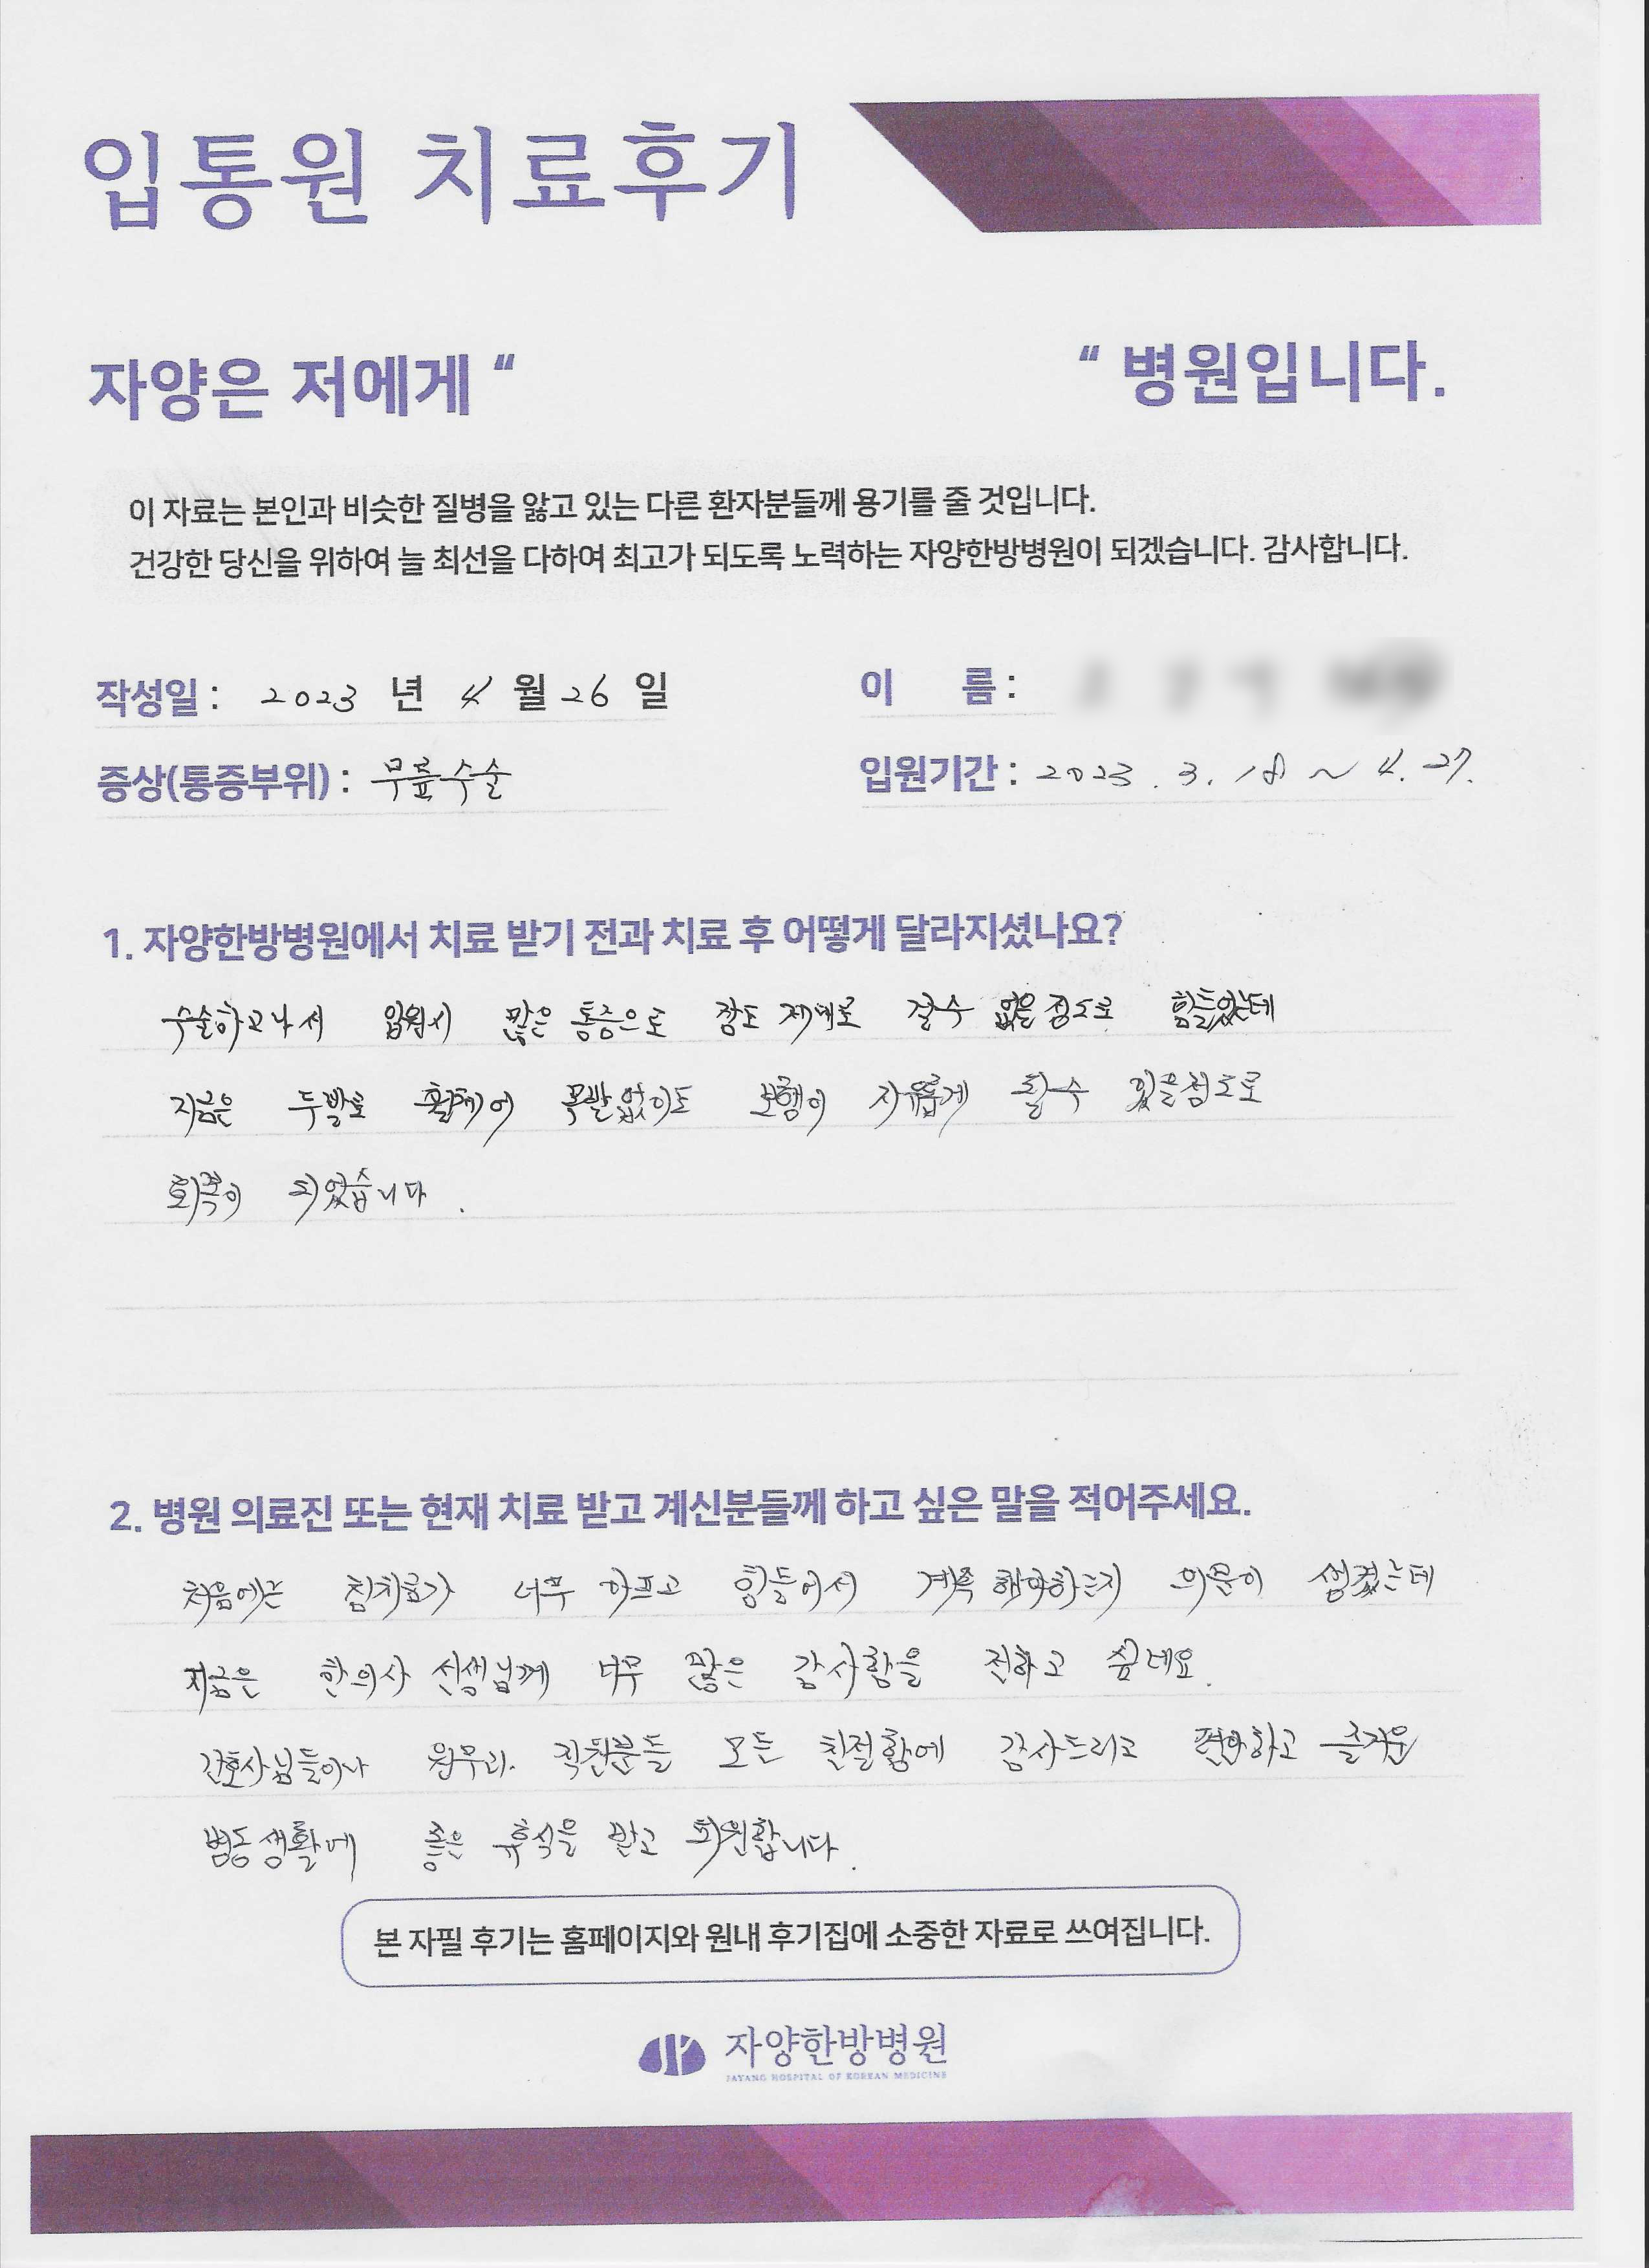 입통원 치료후기
자양은 저에게 “ “ 병원입니다.
이 자료는 본인과 비슷한 질병을 앓고 있는 다른 환자분들께 용기를 줄 것입니다.
건강한 당신을 위하여 늘 최선을 다하여 최고가 되도록 노력하는 자양한방병원이 되겠습니다. 감사합니다.
작성일 : 2023 년 4 월 26 일 이 름 :
증상(통증부위) : 무릎수술 입원기간 : 2023. 3. 18 ~ 4. 27.
1. 자양한방병원에서 치료 받기 전과 치료 후 어떻게 달라지셨나요?
수술하고나서 입원시 많은 통증으로 잠도 제대로 잘수 없을정도로 힘들었는데
지금은 두발로 목발없이도 보행이 자유롭게 할수 있을정도로
회복이 되었습니다.
2. 병원 의료진 또는 현재 치료 받고 계신분들께 하고 싶은 말을 적어주세요.
처음에는 침치료가 너무 아프고 힘들어서 계속 해야하는지 의문이 생겼는데
지금은 한의사 선생님께 너무 많은 감사함을 전하고 싶네요.
간호사님들이나 원무과. 직원분들 모든 친절함에 감사드리고 편안하고 즐거운
병동생활에 좋은 휴식을 받고 퇴원합니다.
본 자필 후기는 홈페이지와 원내 후기집에 소중한 자료로 쓰여집니다.
자양한방병원
JAYANG HOSPITAL OF KOREAN MEDICINE